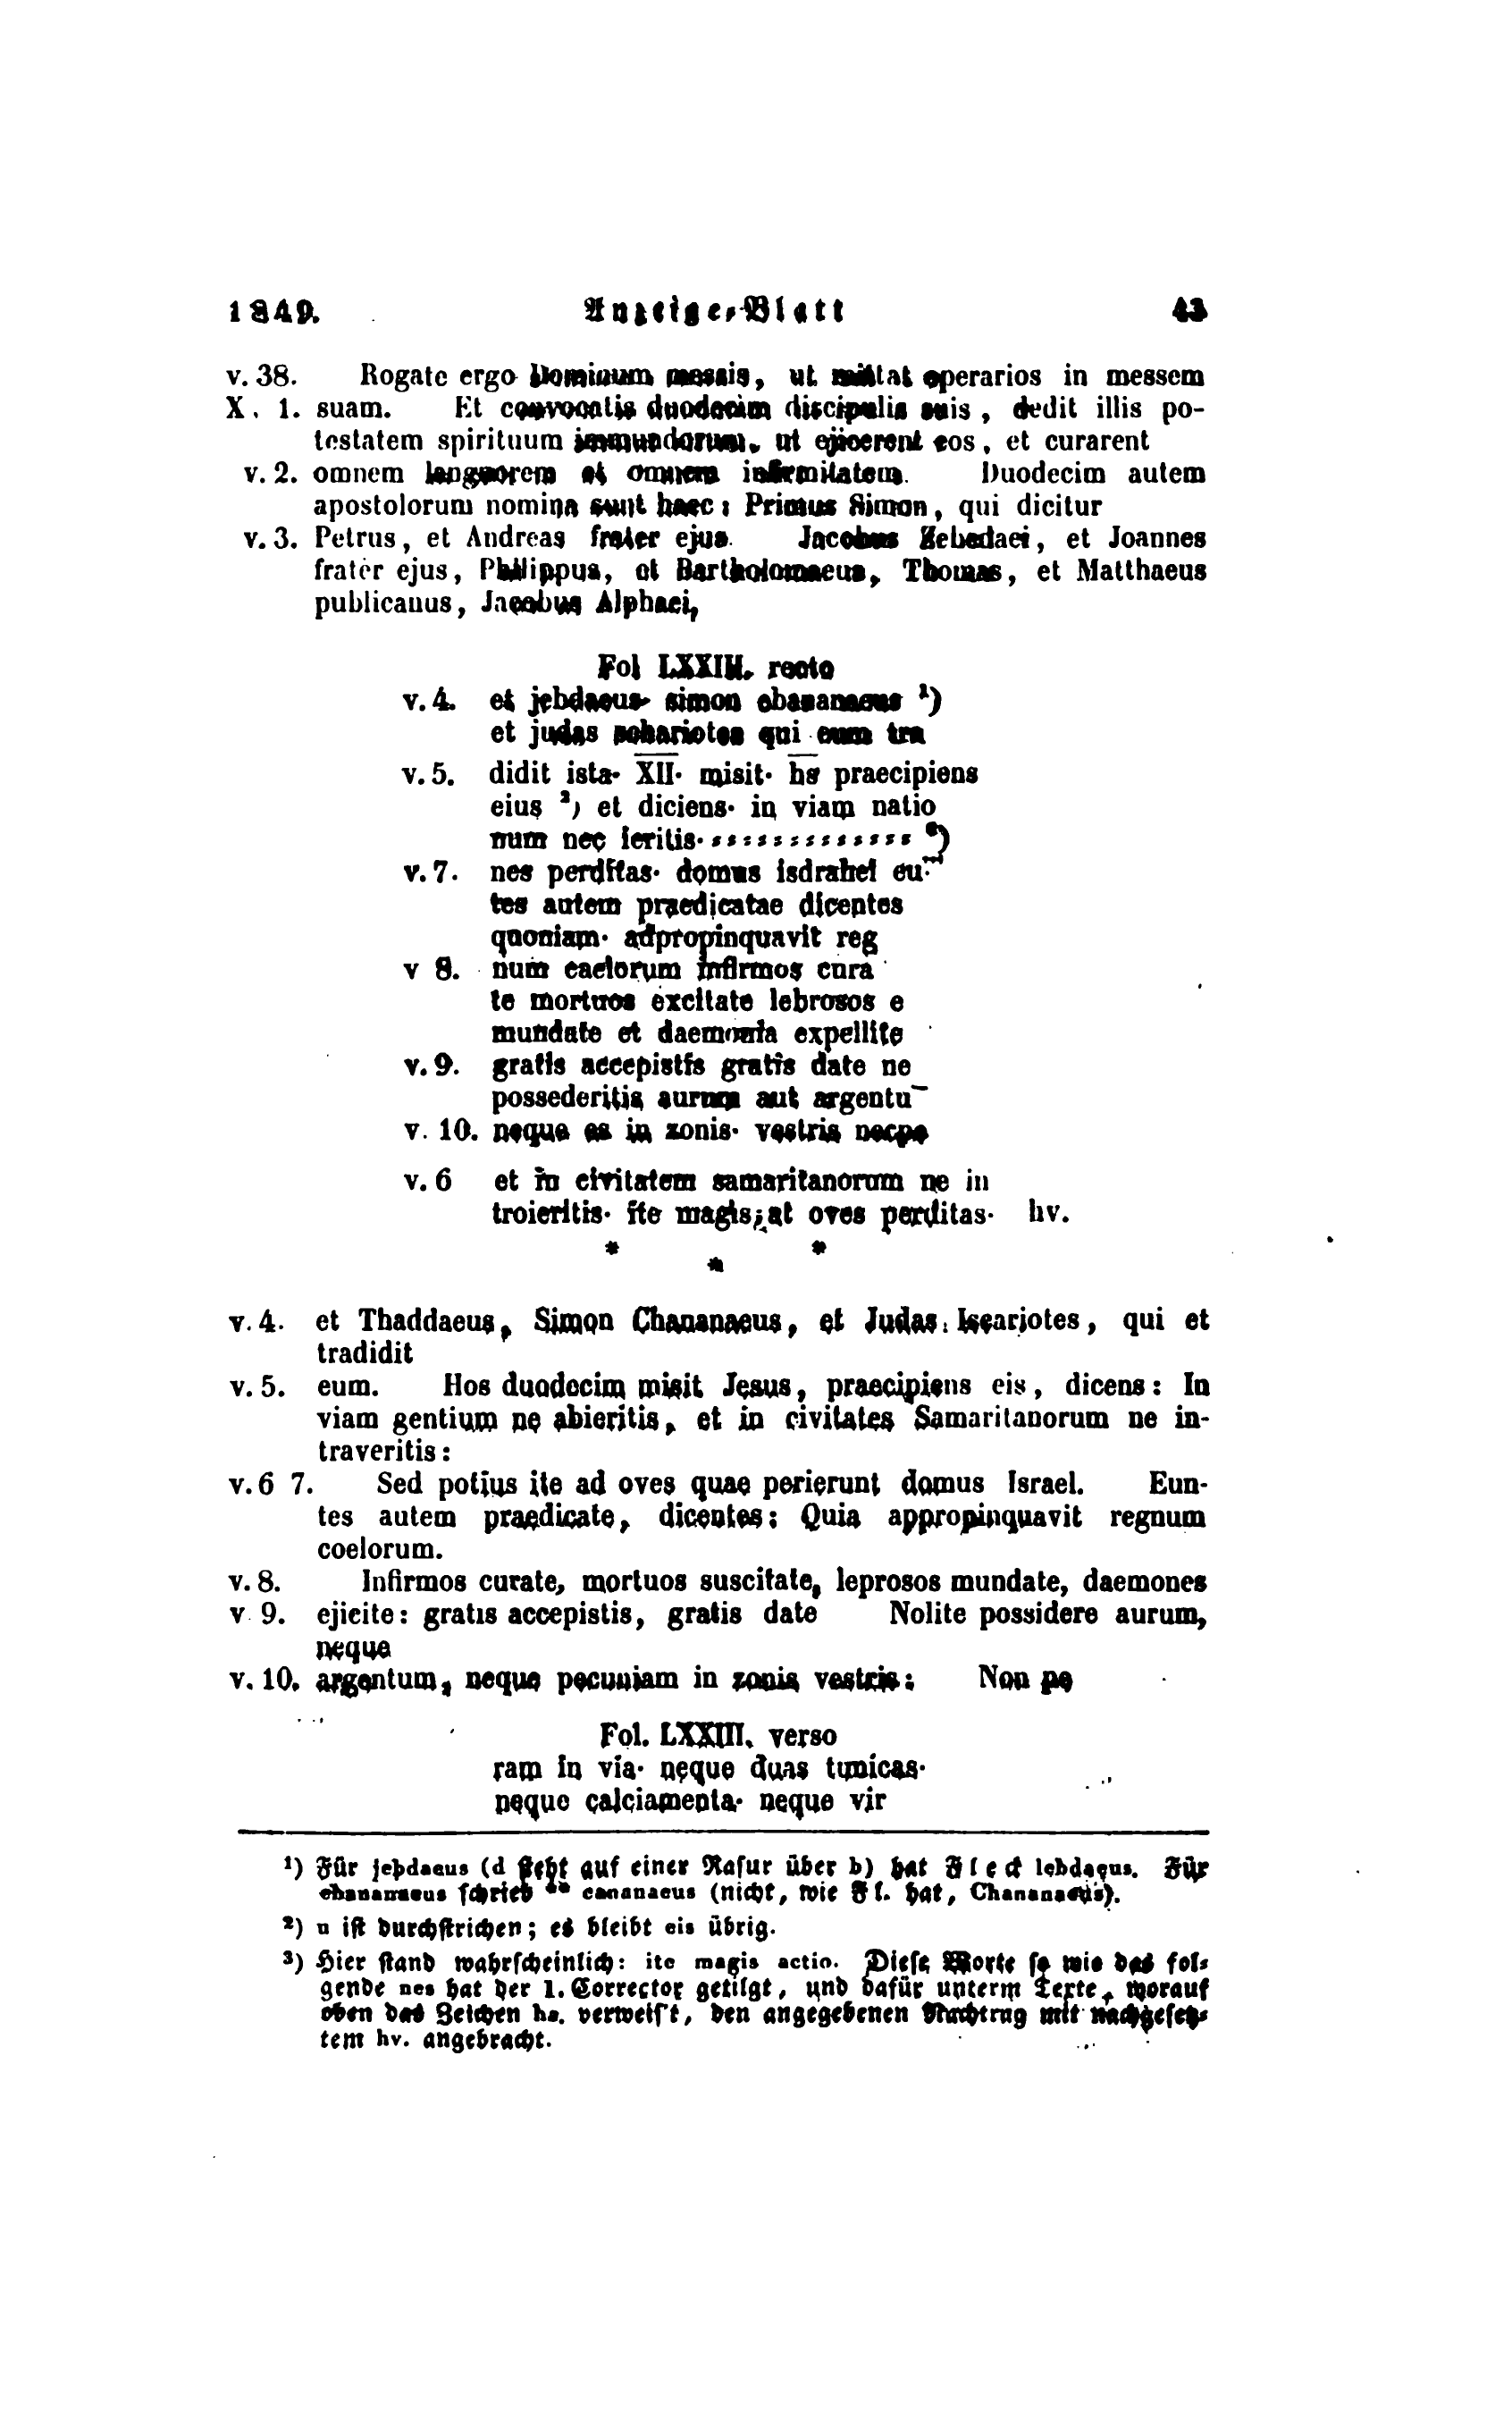 1849. Anzeige-Blatt 43
v. 38. Rogate ergo Dominum messis, ut mittat operarios in messem
X. 1. suam. Et convocatis duodecim discipulis suis, dedit illis po-
testatem spirituum immundorum, ut ejicerent eos, et curarent
v. 2. omnem languorem et omnem infirmitatem. Duodecim autem
apostolorum nomina sunt haec: Primus Simon, qui dicitur
v. 3. Petrus, et Andreas frater ejus. Jacobus Zebedaei, et Joannes
frater ejus, Philippus, et Bartholomaeus, Thomas, et Matthaeus
publicanus, Jacobus Alphaei,
Fol LXXIII. recto
v. 4. et jebdaeus· simon chananaeus ¹)
et judas schariotes qui eum tra
v. 5. didit ista· XII· misit· hs praecipiens
eius ²) et diciens· in viam natio
num nec ieritis· ³)
v. 7. nes perditas· domus isdrahel eu
tes autem praedicatae dicentes
quoniam· adpropinquavit reg
v 8. num caelorum infirmos cura
te mortuos excitate lebrosos e
mundate et daemonia expellite
v. 9. gratis accepistis gratis date ne
possederitis aurum aut argentu¯
v. 10. neque es in zonis· vestris necpe
v. 6 et in civitatem samaritanorum ne in
troieritis· ite magis; at oves perditas· hv.
* * *
v. 4. et Thaddaeus, Simon Chananaeus, et Judas Iscariotes, qui et
tradidit
v. 5. eum. Hos duodecim misit Jesus, praecipiens eis, dicens: In
viam gentium ne abieritis, et in civitates Samaritanorum ne in-
traveritis:
v. 6 7. Sed potius ite ad oves quae perierunt domus Israel. Eun-
tes autem praedicate, dicentes: Quia appropinquavit regnum
coelorum.
v. 8. Infirmos curate, mortuos suscitate, leprosos mundate, daemones
v 9. ejicite: gratis accepistis, gratis date Nolite possidere aurum,
neque
v. 10. argentum, neque pecuniam in zonis vestris: Non pe
Fol. LXXIII. verso
ram in via· neque duas tunicas·
neque calciamenta· neque vir
¹) Für jebdaeus (d steht auf einer Rasur über b) hat Fleck lebdaeus. Für
chananaeus schrieb ** cananaeus (nicht, wie Fl. hat, Chananaeus).
²) u ist durchstrichen; es bleibt eis übrig.
³) Hier stand wahrscheinlich: ite magis actio. Diese Worte so wie das fol-
gende nes hat der 1. Corrector getilgt, und dafür unterm Texte, worauf
oben das Zeichen hs. verweis't, den angegebenen Nachtrag mit nachgesetz-
tem hv. angebracht.